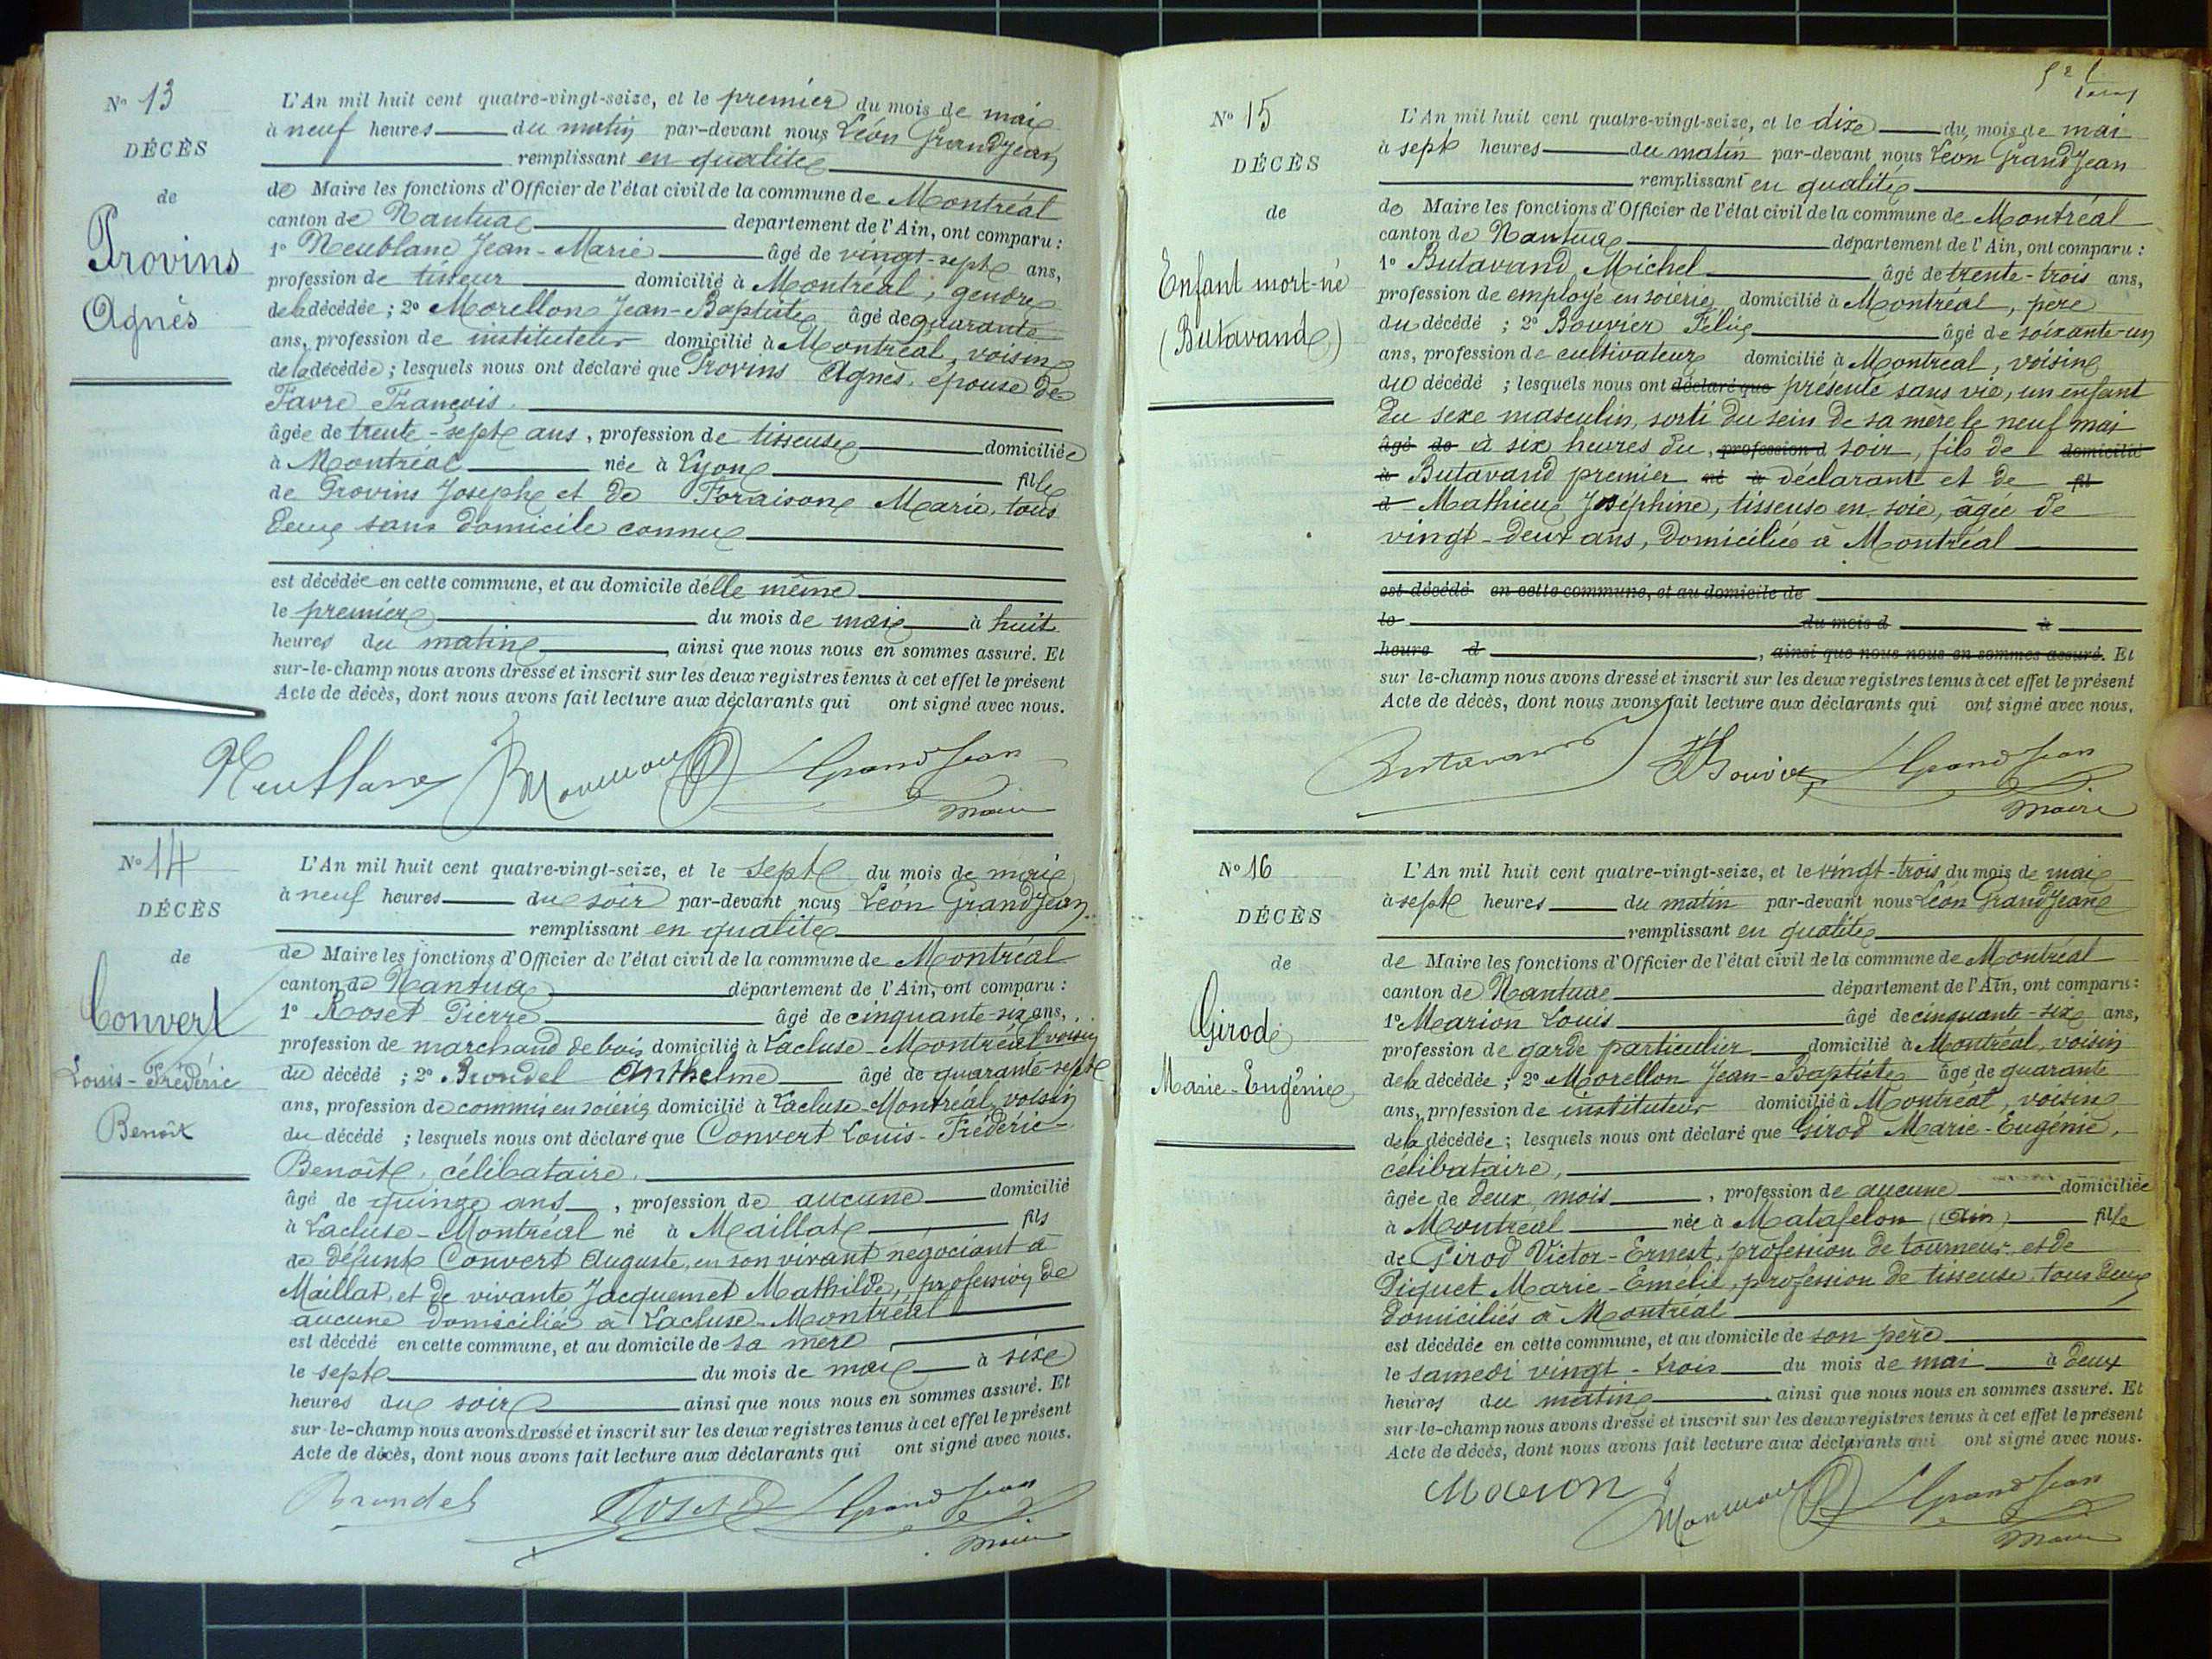 N° 13
DÉCÈS
de
Provins
Agnès
L'An mil huit cent quatre-vingt-seize, et le premier du mois de mai
à neuf heures du matin par-devant nous Léon Grandjean
remplissant en qualité
de Maire les fonctions d'Officier de l'état civil de la commune de Montréal
canton de Nantua departement de l'Ain, ont comparu :
1° Neublanc Jean-Marie âgé de vingt-sept ans,
profession de tisseur domicilié à Montréal, gendre
de la décédée ; 2° Morellon Jean-Baptiste âgé de quarante
ans, profession de instituteur domicilié à Montréal, voisin
de la décédée ; lesquels nous ont déclaré que Provins Agnès, épouse de
Favre François.
âgée de trente-sept ans, profession de tisseuse domiciliée
à Montréal née à Lyon fille
de Provins Joseph et de Foraison Marie, tous
deux sans domicile connu
est décédée en cette commune, et au domicile d'elle même
le premier du mois de mai à huit
heures du matin, ainsi que nous nous en sommes assuré. Et
sur-le-champ nous avons dressé et inscrit sur les deux registres tenus à cet effet le présent
Acte de décès, dont nous avons fait lecture aux déclarants qui ont signé avec nous.
Neublanc Grandjean
Maire
N° 14
DÉCÈS
de
Convert
Louis-Frédéric
Benoît
L'An mil huit cent quatre-vingt-seize, et le sept du mois de mai
à neuf heures du soir par-devant nous Léon Grandjean
remplissant en qualité
de Maire les fonctions d'Officier de l'état civil de la commune de Montréal
canton de Nantua département de l'Ain, ont comparu :
1° Roset Pierre âgé de cinquante-six ans,
profession de marchand de bois domicilié à Lacluse-Montréal voisin
du décédé ; 2° Brondel Anthelme âgé de quarante-sept
ans, profession de commis en soierie domicilié à Lacluse-Montréal, voisin
du décédé ; lesquels nous ont déclaré que Convert Louis-Frédéric-
Benoît, célibataire.
âgé de quinze ans, profession de aucune domicilié
à Lacluse-Montréal né à Maillat fils
de défunt Convert Auguste, en son vivant négociant à
Maillat, et de vivante Jacquemet Mathilde, profession de
aucune domiciliée à Lacluse-Montréal
est décédé en cette commune, et au domicile de sa mère
le sept du mois de mai à six
heures du soir ainsi que nous nous en sommes assuré. Et
sur-le-champ nous avons dressé et inscrit sur les deux registres tenus à cet effet le présent
Acte de décès, dont nous avons fait lecture aux déclarants qui ont signé avec nous.
Brondel Roset Grandjean
Maire
N° 15
DÉCÈS
de
Enfant mort-né
(Butavand)
L'An mil huit cent quatre-vingt-seize, et le dix du mois de mai
à sept heures du matin par-devant nous Léon Grandjean
remplissant en qualité
de Maire les fonctions d'Officier de l'état civil de la commune de Montréal
canton de Nantua département de l'Ain, ont comparu :
1° Butavand Michel âgé de trente-trois ans,
profession de employé en soierie domicilié à Montréal, père
du décédé ; 2° Bouvier Félix âgé de soixante-un
ans, profession de cultivateur domicilié à Montréal, voisin
du décédé ; lesquels nous ont déclaré que présenté sans vie, un enfant
du sexe masculin, sorti du sein de sa mère le neuf mai
âgé de à six heures du, profession d soir, fils de domicilié
à Butavand premier né à déclarant et de fil
d Mathieu Joséphine, tisseuse en soie, âgée de
vingt-deux ans, domiciliée à Montréal
est décédé en cette commune, et au domicile de
le du mois d à
heure d, ainsi que nous nous en sommes assuré. Et
sur-le-champ nous avons dressé et inscrit sur les deux registres tenus à cet effet le présent
Acte de décès, dont nous avons fait lecture aux déclarants qui ont signé avec nous.
Butavand Bouvier Grandjean
Maire
N° 16
DÉCÈS
de
Girod
Marie-Eugénie
L'An mil huit cent quatre-vingt-seize, et le vingt-trois du mois de mai
à sept heures du matin par-devant nous Léon Grandjean
remplissant en qualité
de Maire les fonctions d'Officier de l'état civil de la commune de Montréal
canton de Nantua département de l'Ain, ont comparu :
1° Marion Louis âgé de cinquante-six ans,
profession de garde particulier domicilié à Montréal, voisin
de la décédée ; 2° Morellon Jean-Baptiste âgé de quarante
ans, profession de instituteur domicilié à Montréal, voisin
de la décédée ; lesquels nous ont déclaré que Girod Marie-Eugénie,
célibataire,
âgée de deux mois, profession de aucune domiciliée
à Montréal née à Matafelon (Ain) fille
de Girod Victor-Ernest, profession de tourneur et de
Piquet Marie-Emélie, profession de tisseuse, tous deux
domiciliés à Montréal
est décédée en cette commune, et au domicile de son père
le samedi vingt-trois du mois de mai à deux
heures du matin, ainsi que nous nous en sommes assuré. Et
sur-le-champ nous avons dressé et inscrit sur les deux registres tenus à cet effet le présent
Acte de décès, dont nous avons fait lecture aux déclarants qui ont signé avec nous.
Marion Grandjean
Maire